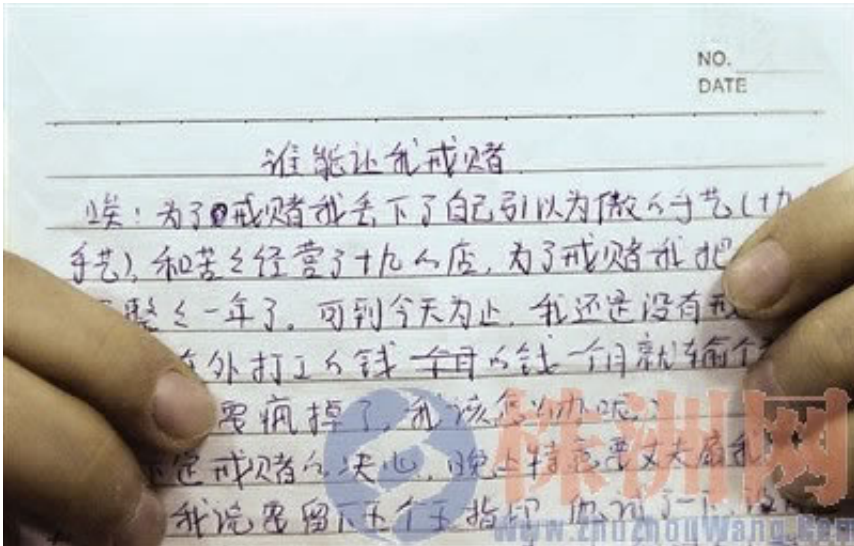 NO.
DATE
谁能让我戒赌
唉！为了戒赌我丢下了自己引以为傲的手艺(十九
手艺)，和苦々经营了十九年的店，为了戒赌我把
整々一年了。可到今天为止，我还是没有戒
外打工的钱 一个月就输个
要疯掉了，我该怎么办呢？
定戒赌的决心，晚上特意要丈夫扇我
我说要留下五个手指印
株洲网
www.zhuzhouwang.com